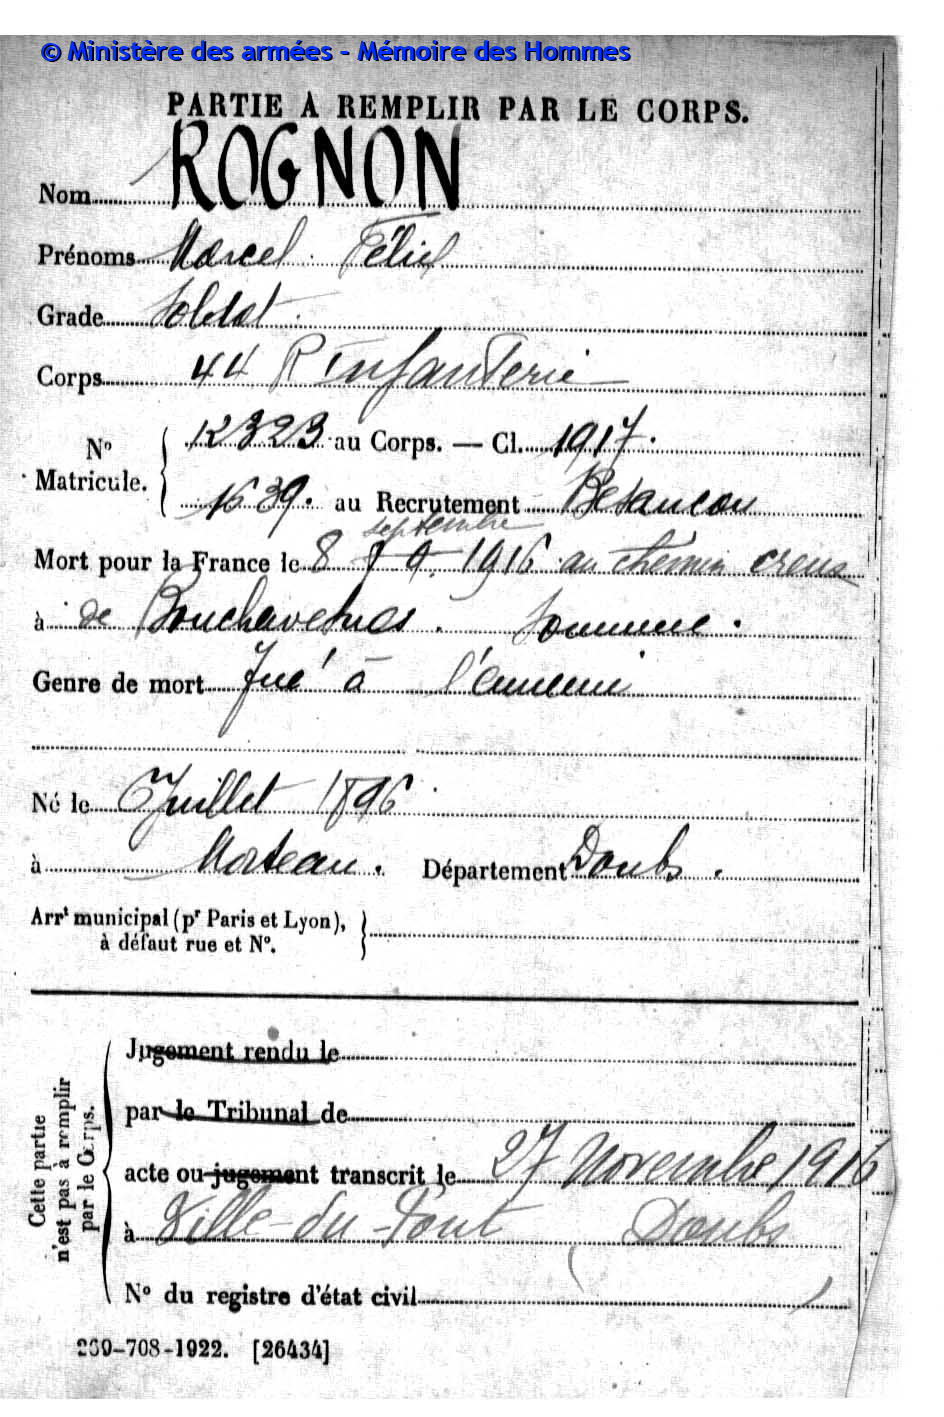 © Ministère des armées - Mémoire des Hommes
PARTIE À REMPLIR PAR LE CORPS.
Nom ROGNON
Prénoms Marcel Félix
Grade Soldat
Corps 44 R Infanterie
N° Matricule. 12323 au Corps. — Cl. 1917.
1639. au Recrutement Besancon
septembre
Mort pour la France le 8 9. 1916 au chemin creux
à de Bouchavesnes. Somme.
Genre de mort Tué à l'ennemi
Né le Juillet 1896
à Morteau. Département Doubs.
Arrt municipal (pr Paris et Lyon),
à défaut rue et N°.
Cette partie
n'est pas à remplir
par le Corps.
Jugement rendu le
par le Tribunal de
acte ou jugement transcrit le 27 Novembre 1916
à Ville-du-Pont (Doubs)
N° du registre d'état civil
269-708-1922. [26434]